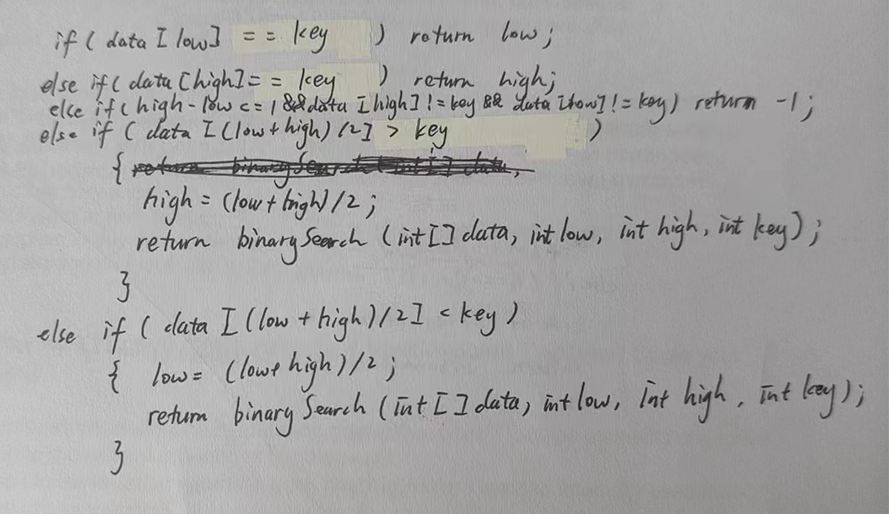 if ( data [low] == key ) return low;
else if( data [high] == key ) return high;
else if( high - low <= 1 && data [high] != key && data [low] != key) return -1;
else if ( data [(low + high) /2] > key )
{
high = (low + high) /2;
return binarySearch (int[] data, int low, int high, int key);
}
else if ( data [(low + high) /2] < key )
{ low = (low + high) /2;
return binarySearch (int [] data, int low, int high, int key);
}